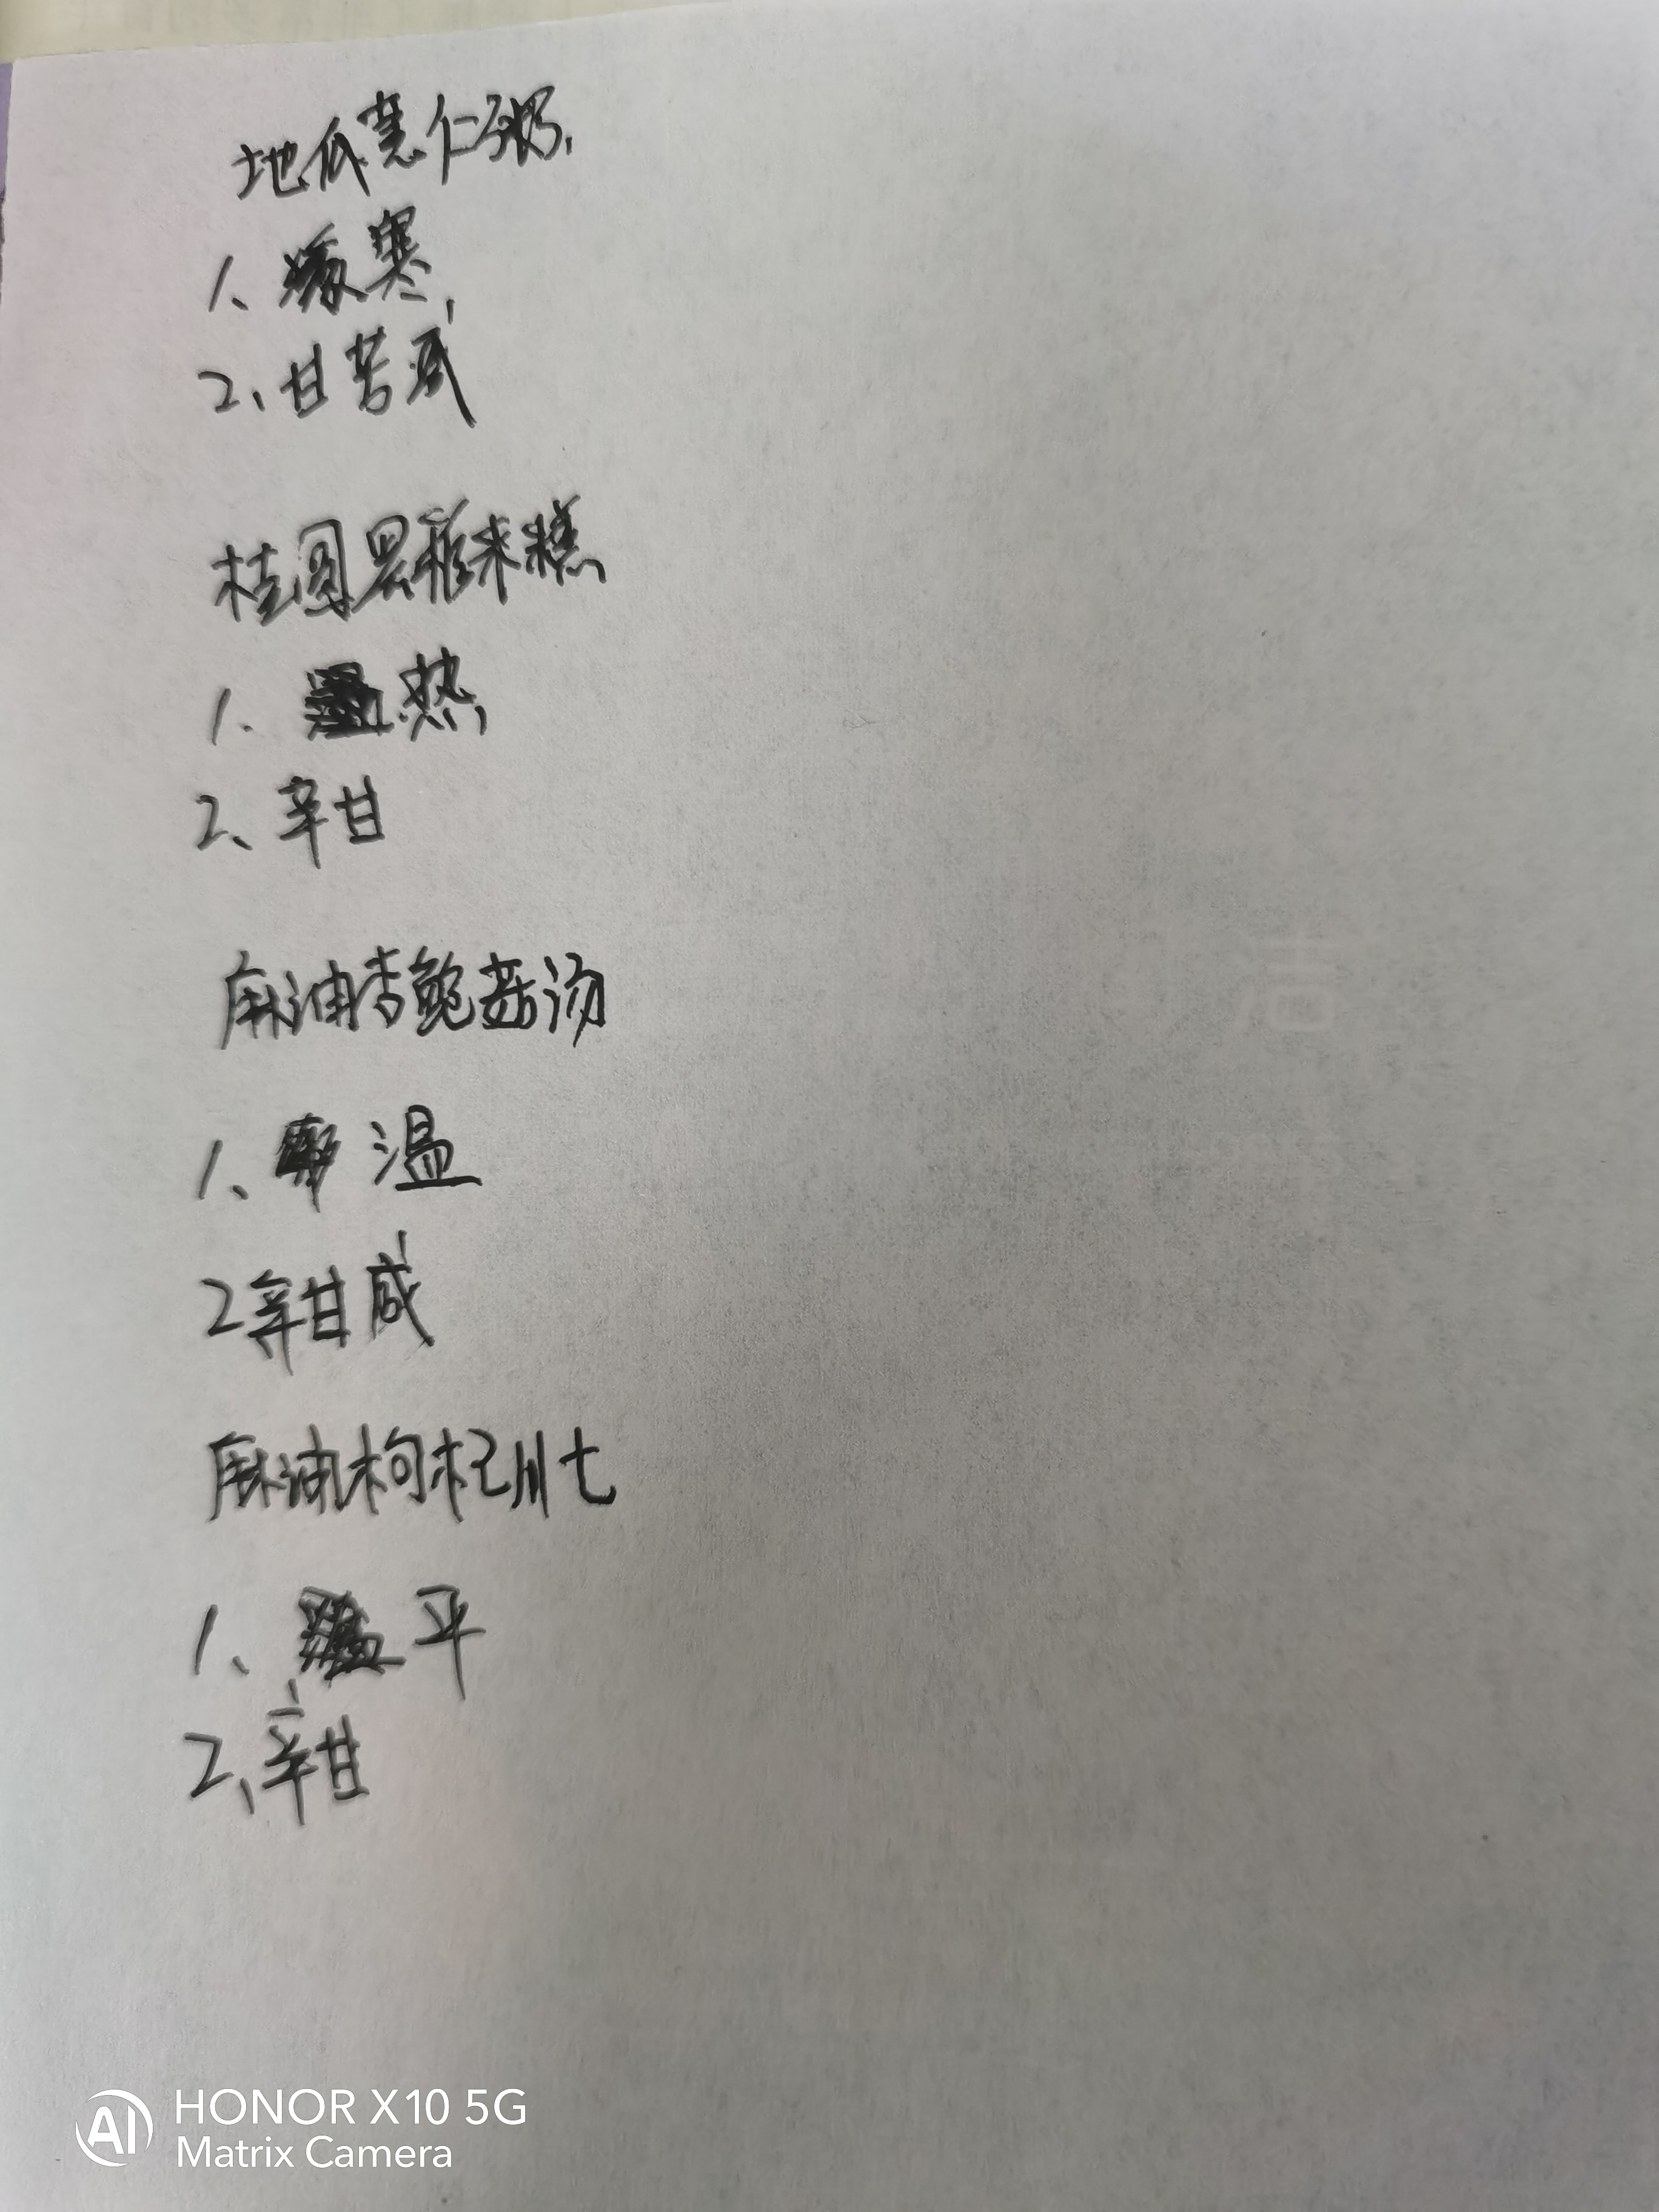 地瓜薏仁粥,
1、寒,
2、甘苦咸
桂圆黑糯米糕
1. 热,
2、辛甘
麻油杏鲍菇汤
1、温
2辛甘咸
麻油枸杞川七
1、平
2、辛甘
HONOR X10 5G
Matrix Camera